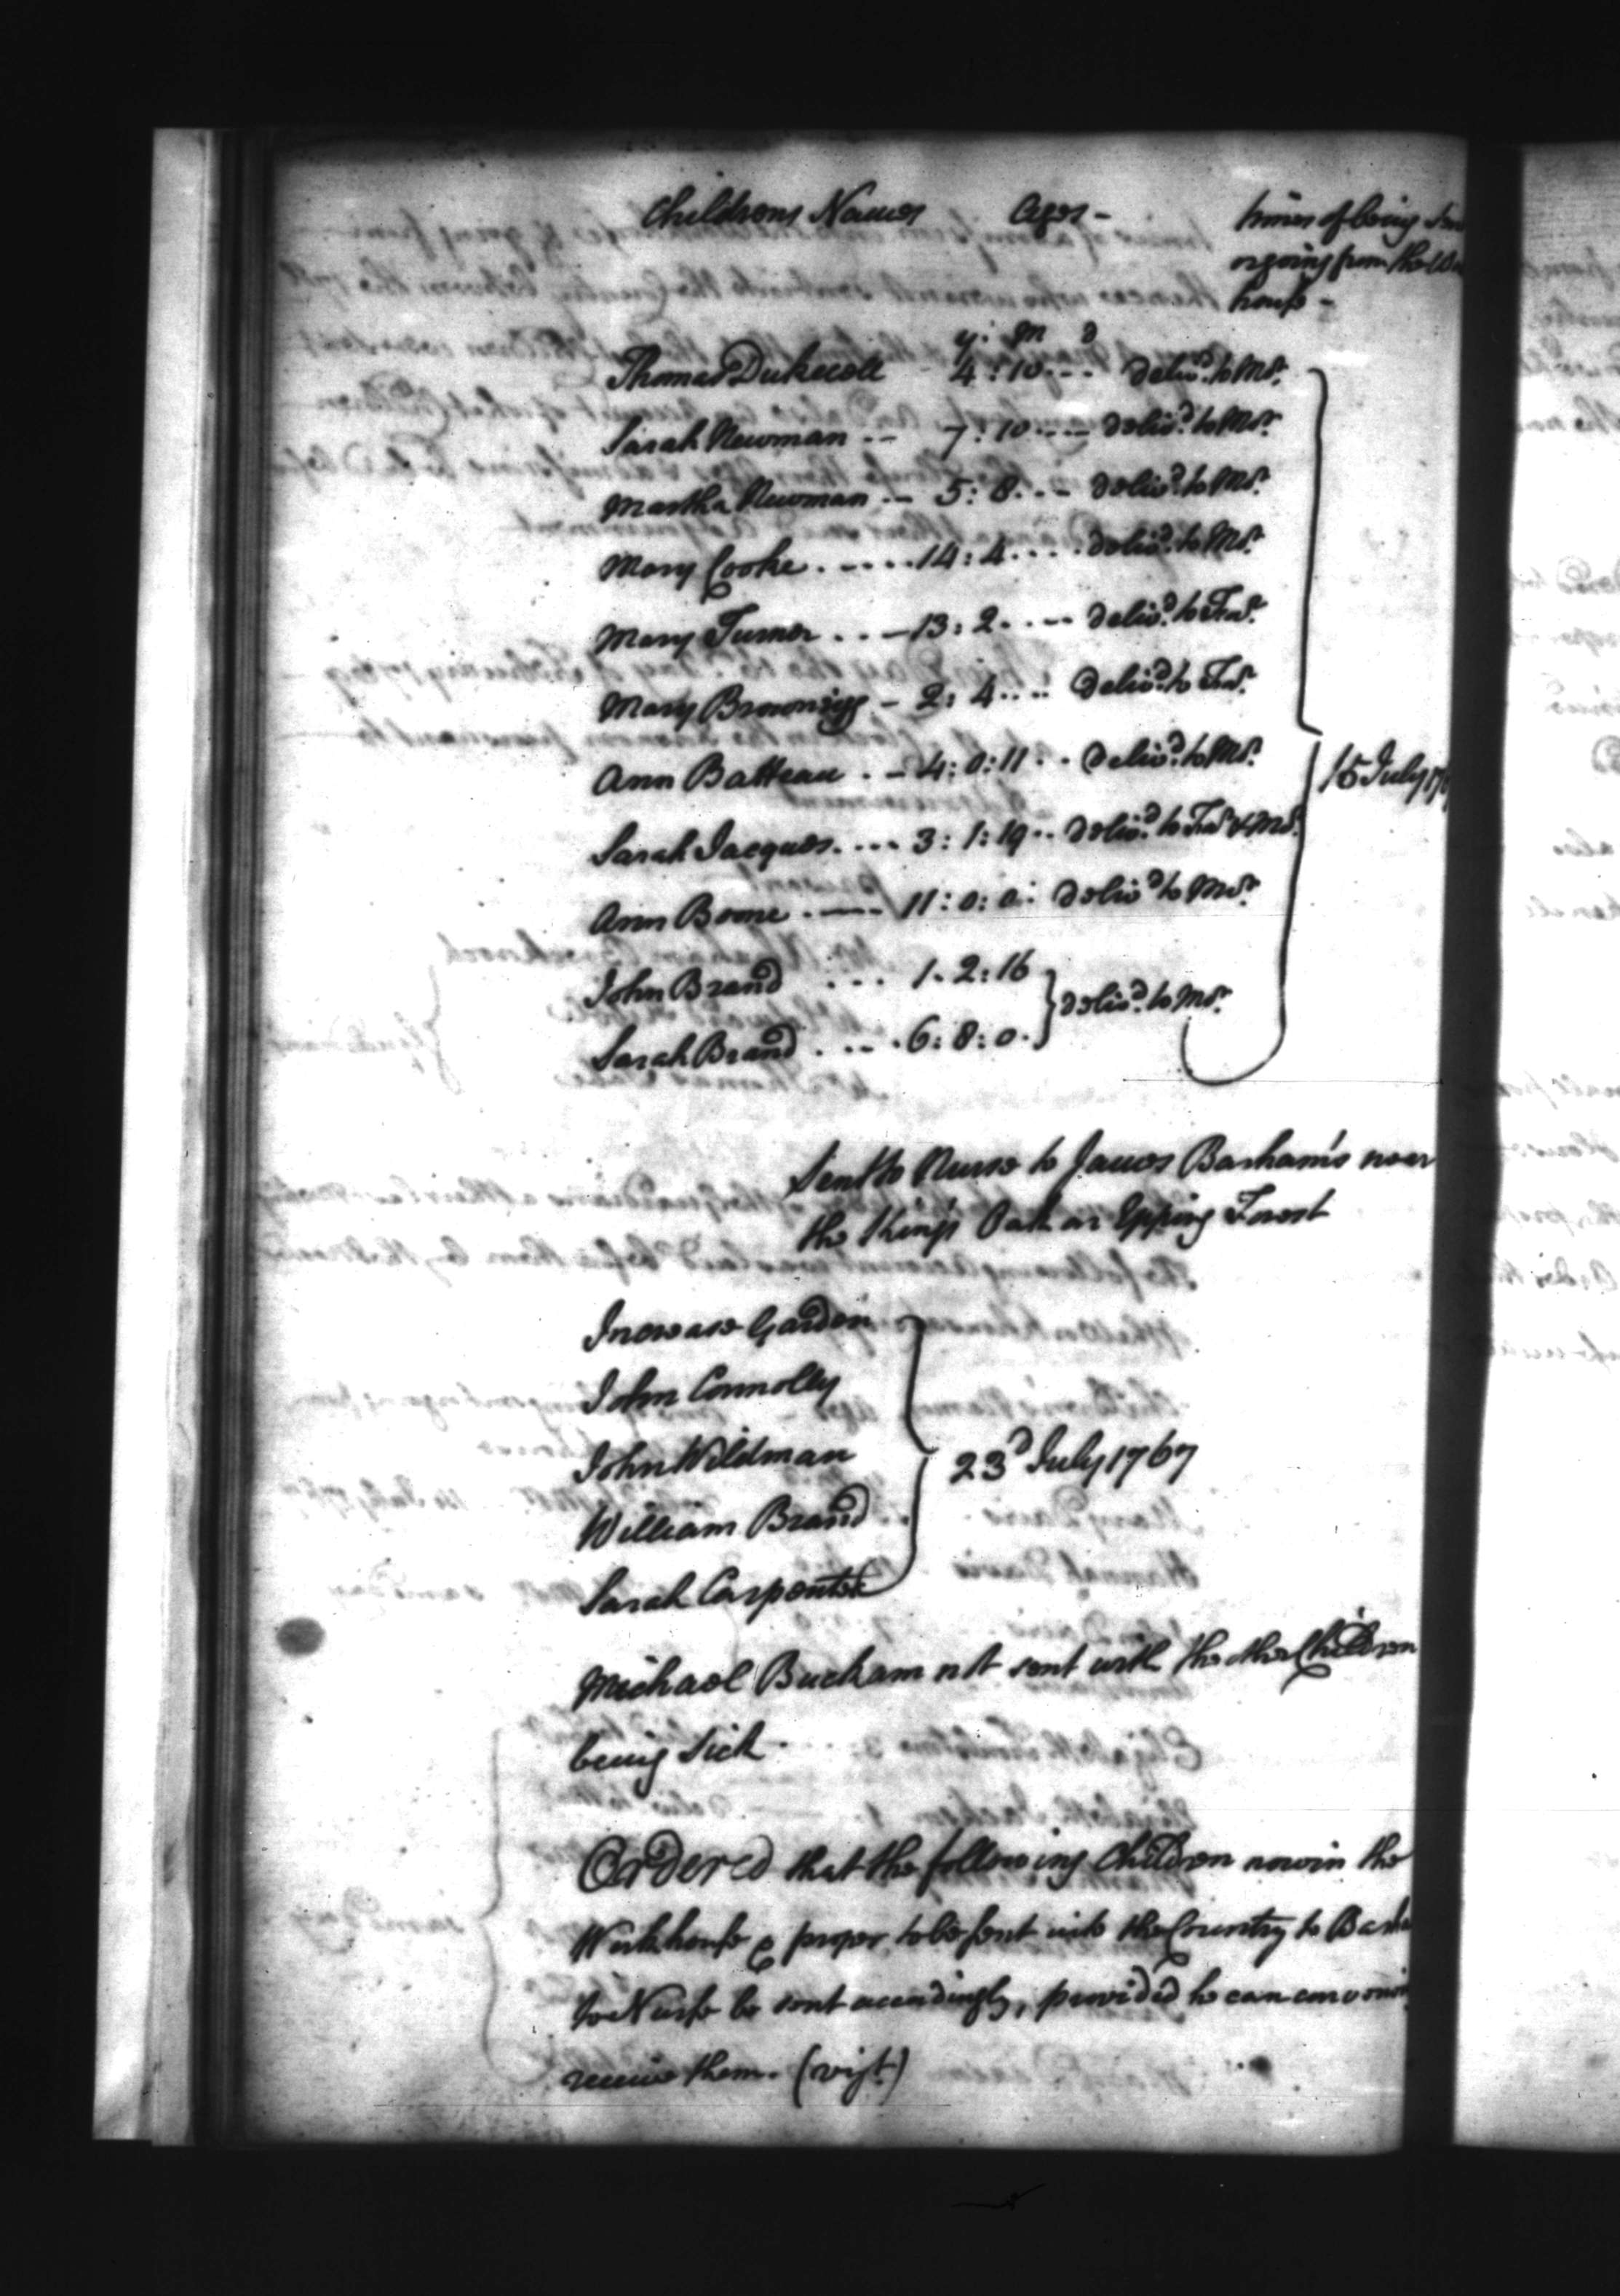 Childrens Names Ages -
times of being
or going from the
house -
y: m d
Thomas Dukwell - 4 : 10 - - - deliv.d to Mr.
Sarah Newman - - 7 : 10 - - - deliv.d to Mr.
Martha Newman - - 5 : 8 - - - deliv.d to Mr.
Mary Cooke . - - . . 14 : 4 . . . . deliv.d to Mr.
Mary Turner . . . - 13 : 2 . . - - deliv.d to Far.
Mary Brownrigg - 2 : 4 . . . . deliv.d to Far.
Ann Batteau . . - 4 : 0 : 11 . . deliv.d to Mr.
15 July
Sarah Jacques . . . . 3 : 1 : 19 . . deliv.d to Far. & Mr.
Ann Boone . - - - 11 : 0 : 0 . . deliv.d to Mr.
John Brand . . . 1 . 2 : 16
deliv.d to Mr.
Sarah Brand . . . . 6 : 8 : 0 .
Sent to Nurse to James Basham's near
the King's Oak on Epping Forest
Increase Garden
John Connolly
John Wildman 23.d July 1767
William Brand
Sarah Carpenter
Michael Bucham not sent with the other Children
being Sick .
Ordered that the following Children now in the
Workhouse & proper to be sent into the Country to
to Nurse be sent accordingly, provided he can
receive them. (vizt.)